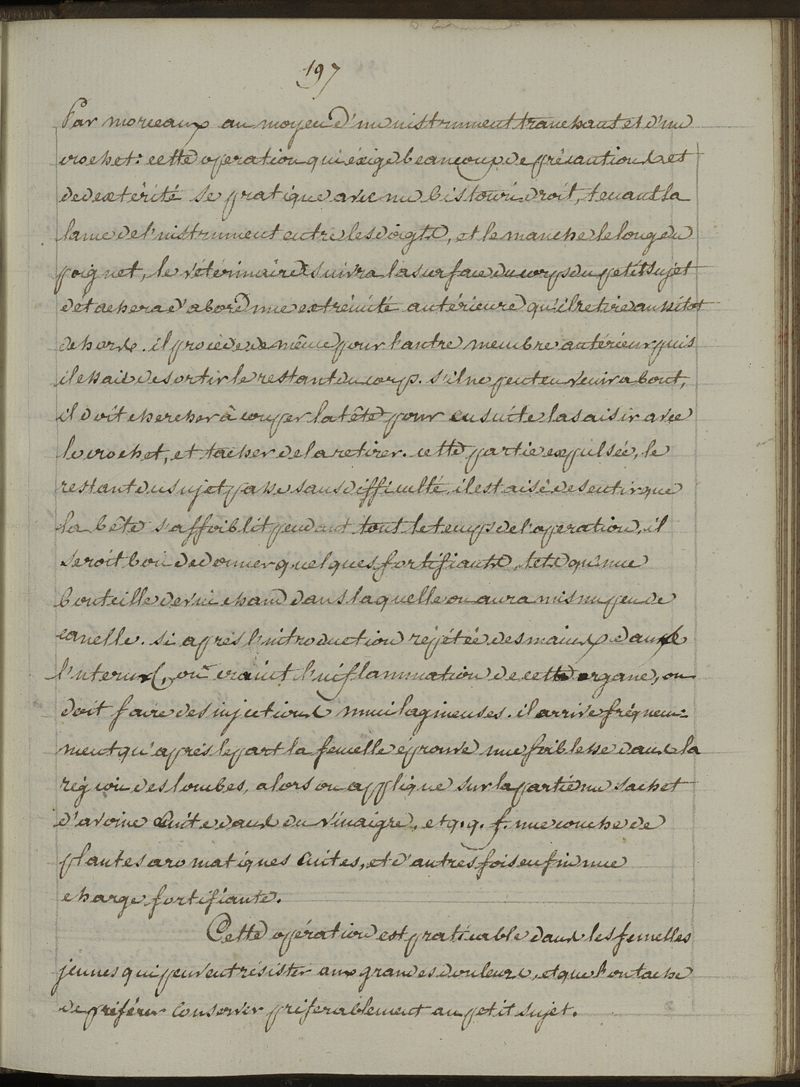 197
Par morceaux au moyen d'un instrument tranchant et d'un
crochet: cette operation qui éxige beaucoup de précautions et
de dextérité se pratique avec un bistouri droit, tenant la
lame de l'instrument entre les doigts, et le manche le long du
poignet, le vétérinaire suivra la surface du corps du petit sujet
détachera d'abord une extrémité antérieure qu'il retire aussitot
dehors. il procéde de même pour l'autre membre antérieur puis
il essaie de sortir le restant du corp. s'il ne peut en venir a bout,
il doit chercher à couper la tête pour ensuite la saisir avec
le crochet, et tacher de la retirer. cette partie expulsée, le
restant du sujet passe sans difficulté, il est aisé de sentir que
la bête s'affoiblit pendant tout le temps de l'operation, il
seroit bon de donner quelques fortifiants, tels qu'une
bouteille de vin chaud dans laquelle on aura mis un peu de
canelle. si apres l'introduction rejétée des mains dans
l'uterus, on craint l'inflammation de cette organe, on
doit faire des injections mucilagineuses. il arrive fréquem=
ment qu'aprés le part la femelle eprouve une foiblesse dans la
région des lombes, alors on applique sur la partie un sachet
d'avoine cuite dans du vinaigre, et q.q. f. une couche de
plantes aromatiques cuites, et d'autres fois enfin une
charge fortifiante.
Cette opération est praticable dans les femelles
jeunes qui peuvent résister aux grandes douleurs, et que l'on tache
de préférer conserver priferablement au petit sujet.